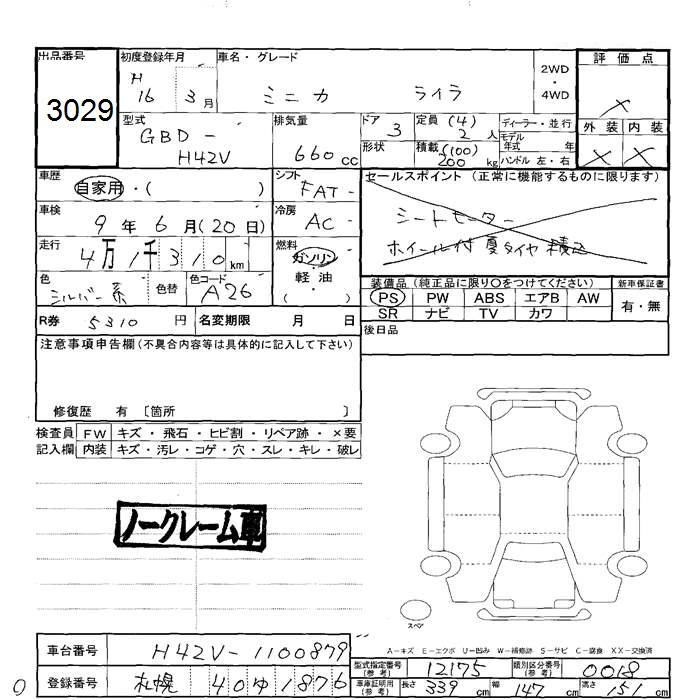 出品番号 初度登録年月 車名・グレード 2WD・4WD 評価点
3029 H16 3月 ミニカ ライラ ×
型式 排気量 ドア 定員 (4) ディーラー・並行 外装 内装
GBD-H42V 660cc 3 2人 モデル年式 年 × ×
形状 積載 (100) 200kg ハンドル 左・右
車歴 シフト セールスポイント (正常に機能するものに限ります)
自家用・( ) FAT- シートヒーター
車検 冷房 ホイール付 夏タイヤ 積込
9年 6月(20日) AC-
走行 燃料
4万1千310km ガソリン・軽油・( )
色 色替 色コード 装備品 (純正品に限り〇をつけてください) 新車保証書
シルバー系 A26 PS PW ABS エアB AW 有・無
SR ナビ TV カワ
R券 5310円 名変期限 月 日 後日品
注意事項申告欄(不具合内容等は具体的に記入して下さい)
修復歴 有 〔箇所 〕
検査員 FW キズ・飛石・ヒビ割・リペア跡・×要
記入欄 内装 キズ・汚レ・コゲ・穴・スレ・キレ・破レ
ノークレーム車
スペア
A-キズ E-エクボ U-凹み W-補修跡 S-サビ C-腐食 XX-交換済
車台番号 H42V-1100879 型式指定番号(参考) 12175 類別区分番号(参考) 0018
登録番号 札幌 40ゆ1876 車庫証明用(参考) 長さ 339cm 幅 147cm 高さ 151cm
0